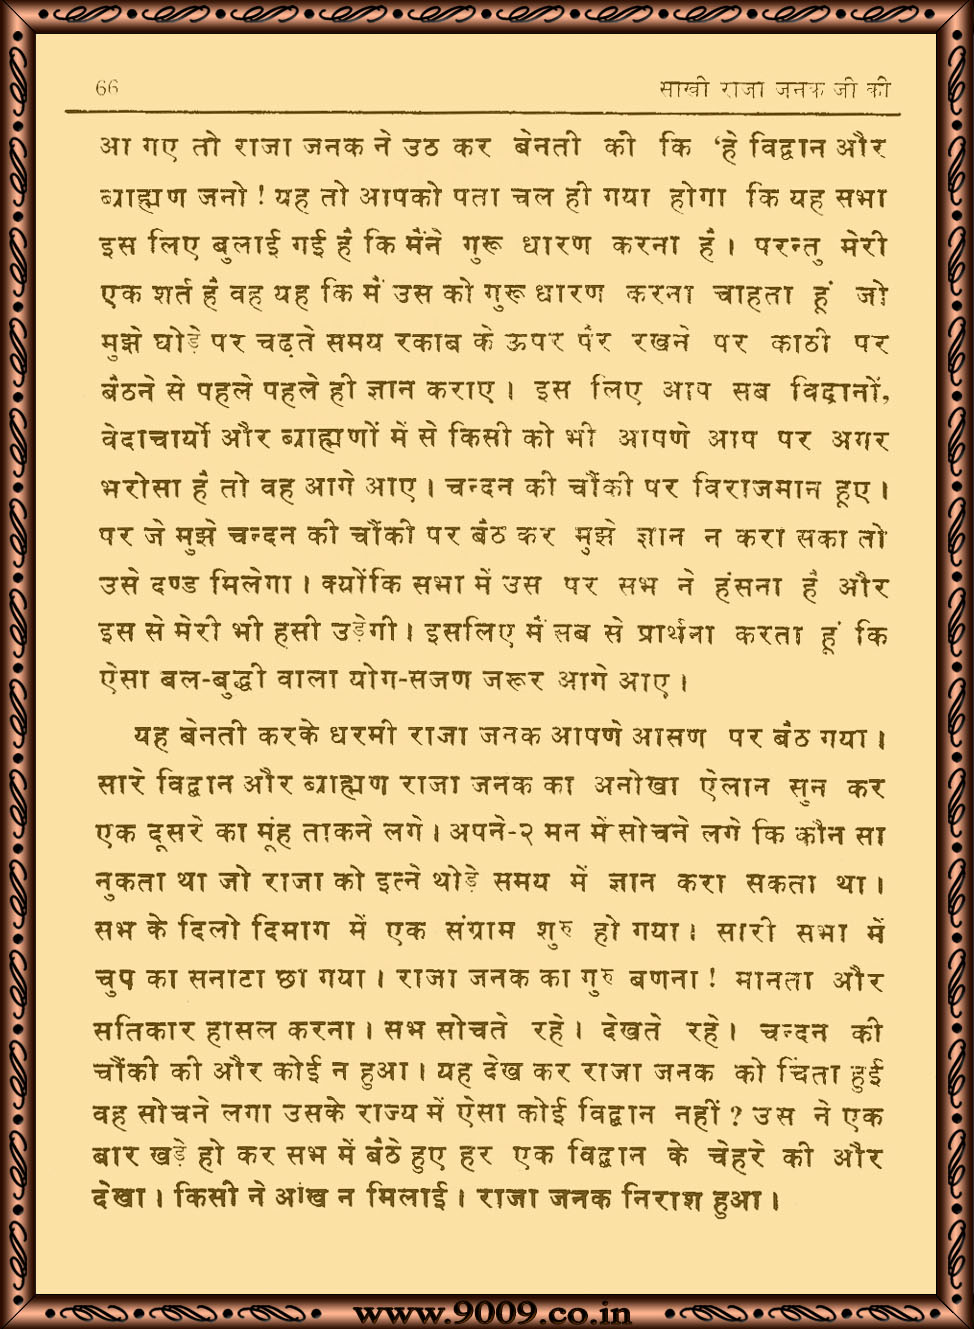 66 साखी राजा जनक जी की
आ गए तो राजा जनक ने उठ कर बेनती की कि ‘हे विद्वान और
ब्राह्मण जनो ! यह तो आपको पता चल ही गया होगा कि यह सभा
इस लिए बुलाई गई है कि मैंने गुरू धारण करना है । परन्तु मेरी
एक शर्त है वह यह कि मैं उस को गुरू धारण करना चाहता हूं जो
मुझे घोड़े पर चढ़ते समय रकाब के ऊपर पैर रखने पर काठी पर
बैठने से पहले पहले ही ज्ञान कराए । इस लिए आप सब विद्वानों,
वेदाचार्यो और ब्राह्मणों में से किसी को भी आपणे आप पर अगर
भरोसा है तो वह आगे आए । चन्दन की चौंकी पर विराजमान हूए ।
पर जे मुझे चन्दन की चौंकी पर बैठ कर मुझे ज्ञान न करा सका तो
उसे दण्ड मिलेगा । क्योंकि सभा में उस पर सभ ने हंसना है और
इस से मेरी भी हसी उड़ेगी । इसलिए मैं सब से प्रार्थना करता हूं कि
ऐसा बल-बुद्धी वाला योग-सजण जरूर आगे आए ।
यह बेनती करके धरमी राजा जनक आपणे आसण पर बैठ गया ।
सारे विद्वान और ब्राह्मण राजा जनक का अनोखा ऐलान सुन कर
एक दूसरे का मूंह ताकने लगे । अपने-२ मन में सोचने लगे कि कौन सा
नुकता था जो राजा को इत्ने थोड़े समय में ज्ञान करा सकता था ।
सभ के दिलो दिमाग में एक संग्राम शुरु हो गया । सारी सभा में
चुप का सनाटा छा गया । राजा जनक का गुरु बणना ! मानता और
सतिकार हासल करना । सभ सोचते रहे । देखते रहे । चन्दन की
चौंकी की और कोई न हुआ । यह देख कर राजा जनक को चिंता हुई
वह सोचने लगा उसके राज्य में ऐसा कोई विद्वान नहीं ? उस ने एक
बार खड़े हो कर सभ में बैठे हुए हर एक विद्वान के चेहरे की और
देखा । किसी ने आंख न मिलाई । राजा जनक निराश हुआ ।
www.9009.co.in